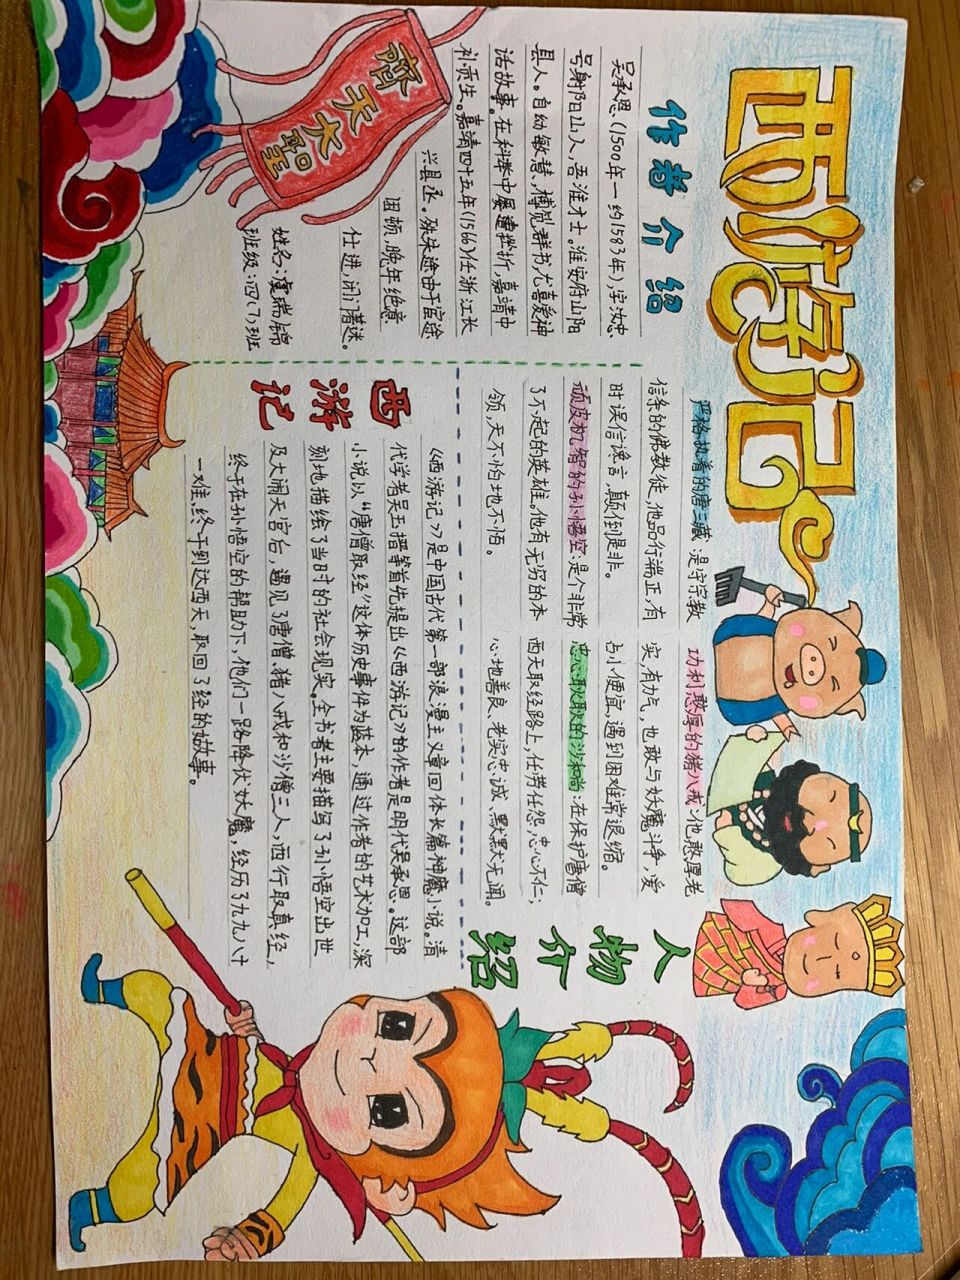 西游记
齊天大聖
作者介绍
吴承恩(1500年一约1583年),字汝忠
号身阳山人,吾淮才士。淮安府山阳
县人。自幼敏慧,博览群书尤喜爱神
话故事。在科举中屡遭挫折,嘉靖中
补贡生。嘉靖四十五年(1566)任浙江长
兴县丞。殊失途由于宦途
困顿,晚年绝意
仕进,闭门著述。
姓名:虞瑞锦
班级:四(7)班
人物介绍
严格执着的唐三藏:是守宗教
信条的佛教徒,他品行端正,有
时误信谗言,颠倒是非。
顽皮机智的孙悟空:是个非常
了不起的英雄。他有无穷的本
领,天不怕地不怕。
功利憨厚的猪八戒:他憨厚老
实,有力气,也敢与妖魔斗争,爱
占小便宜,遇到困难常退缩。
忠心耿耿的沙和尚:在保护唐僧
西天取经路上,任劳任怨,忠心不仁;
心地善良、老实忠诚、默默无闻。
西游记
《西游记》是中国古代第一部浪漫主义章回体长篇神魔小说。清
代学者吴玉搢等首先提出《西游记》的作者是明代吴承恩。这部
小说以“唐僧取经”这体历史事件为蓝本,通过作者的艺术加工,深
刻地描绘了当时的社会现实。全书者主要描写了孙悟空出世
及大闹天宫后,遇见了唐僧.猪八戒和沙僧三人,西行取真经,
终于在孙悟空的帮助下,他们一路降伏妖魔,经历了九九八十
一难,终于到达西天,取回了经的故事。